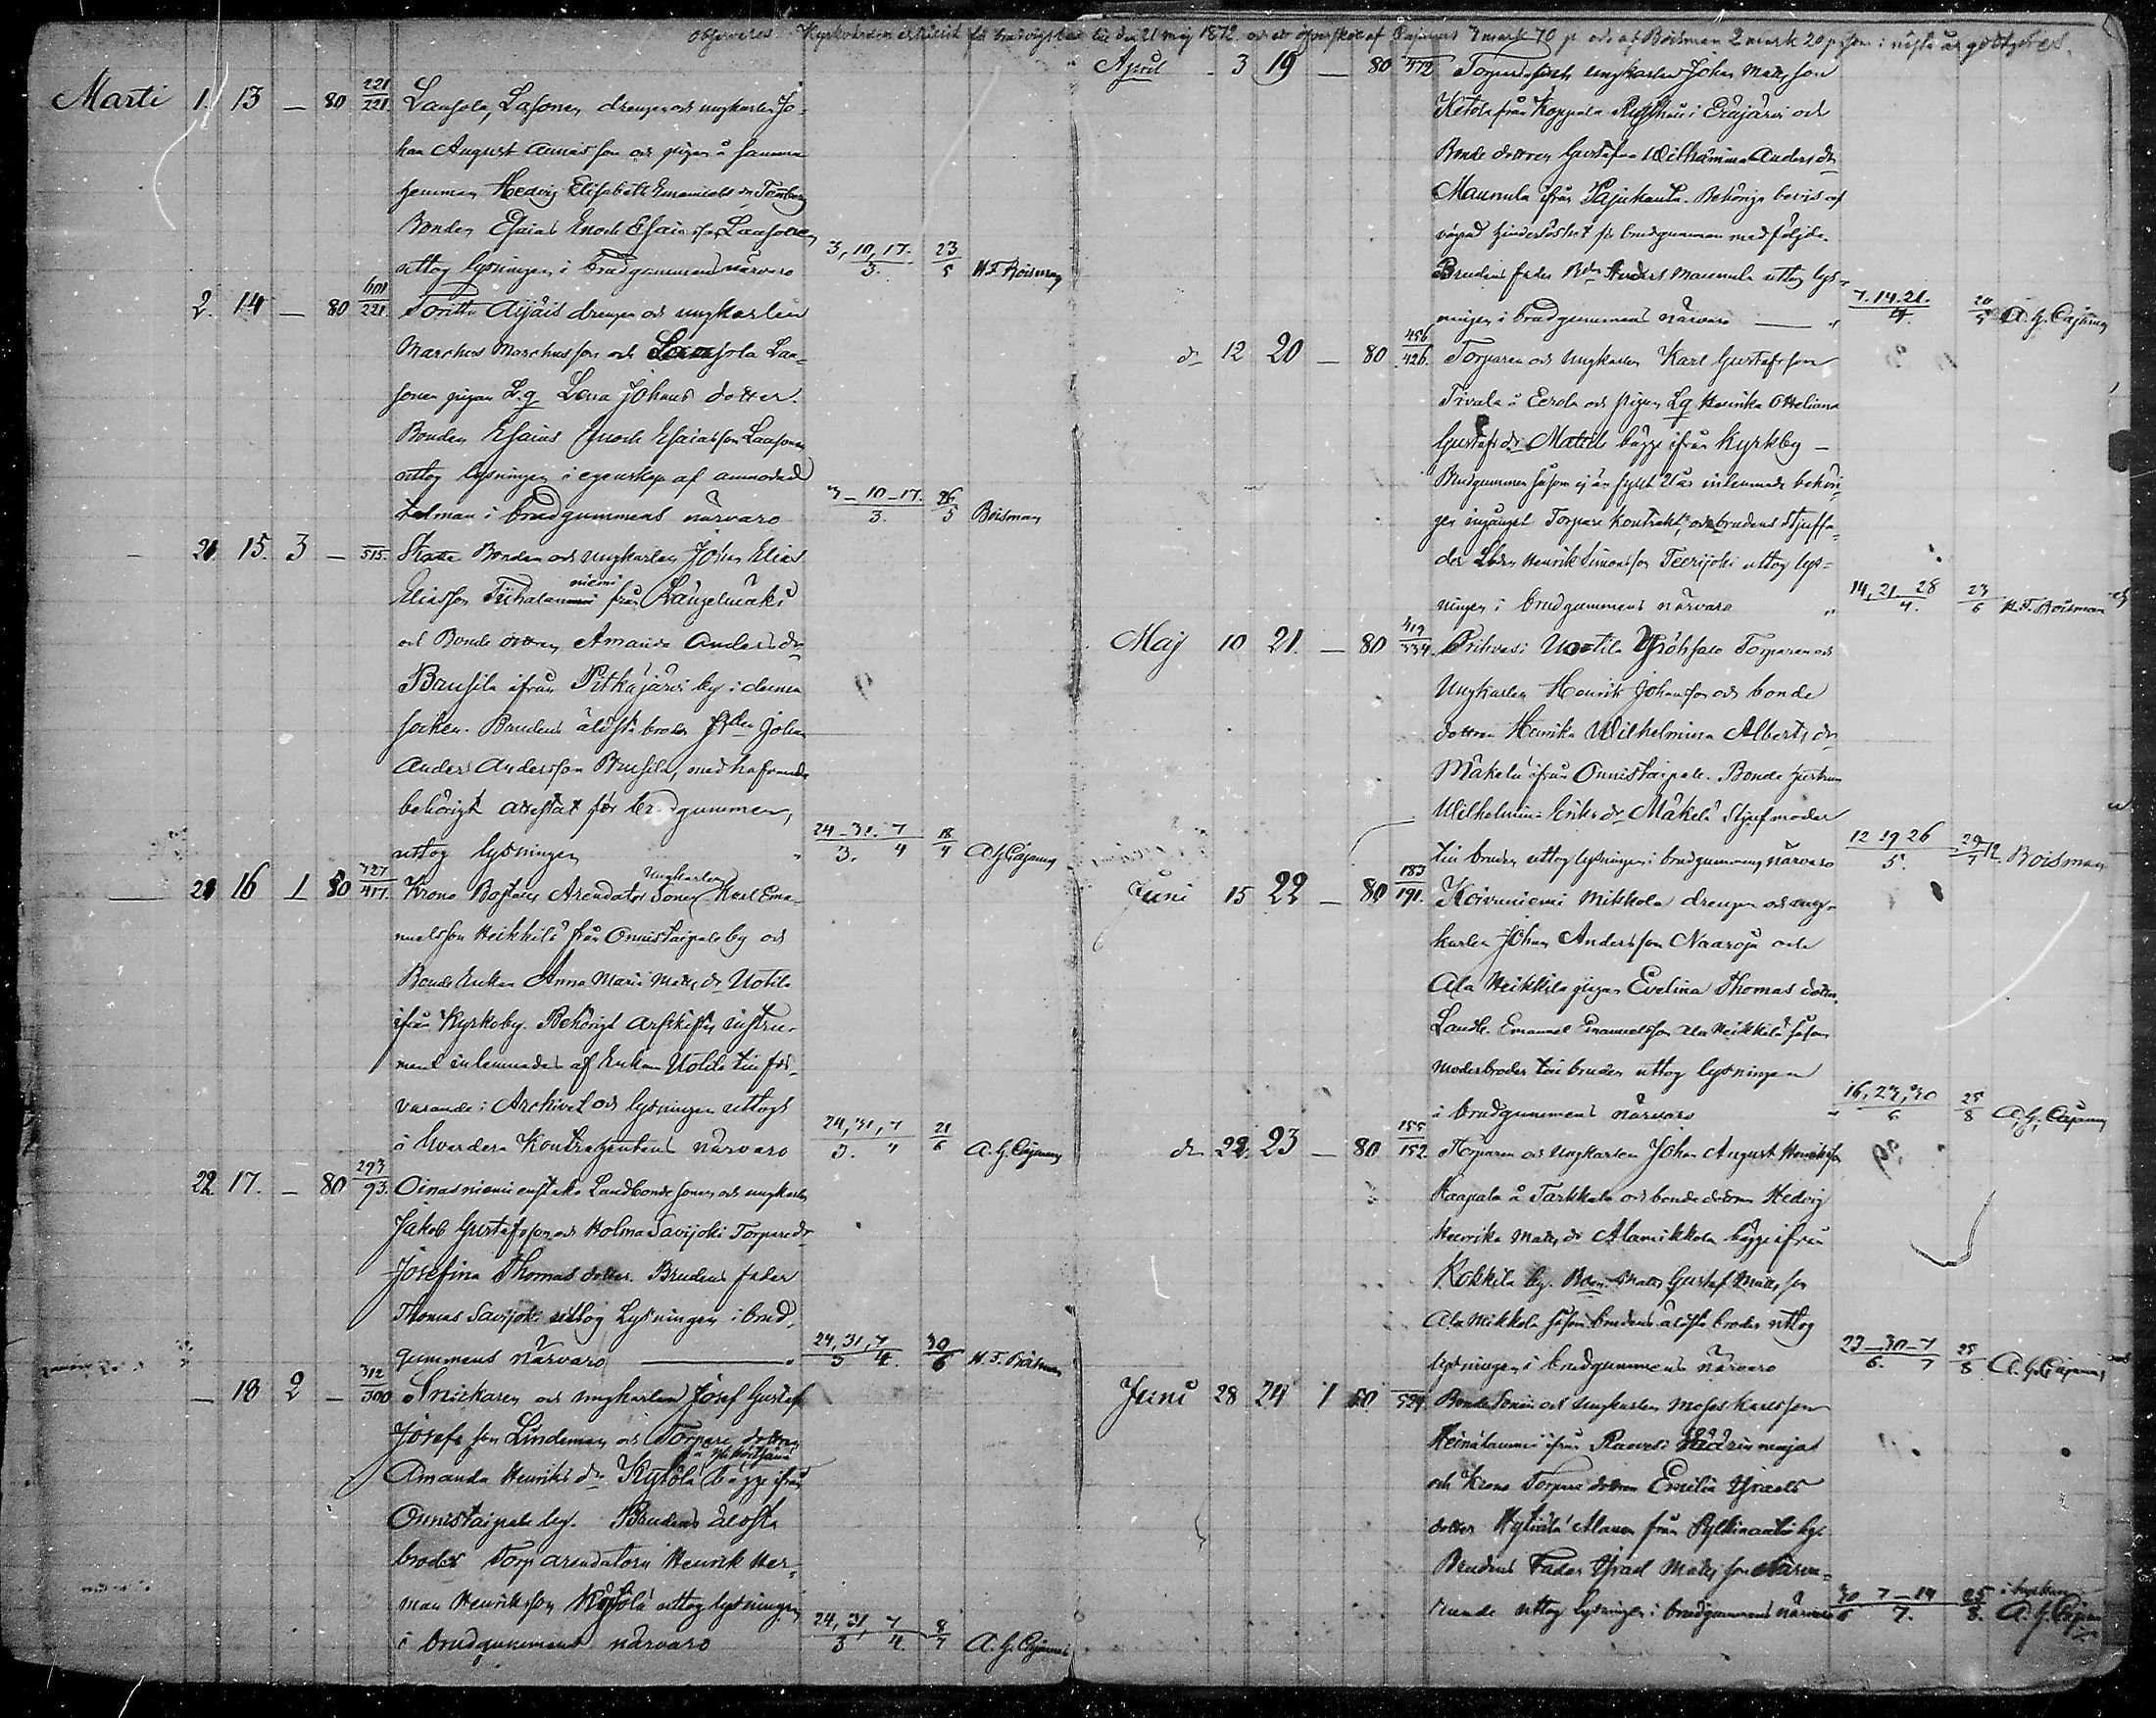 observeras Kyrkovärden till den 21 maj 1872 och af Cajanus 7 mark 70 p och af Boisman 2 mark 20 p
Marti 1. 13 — 80 221/221 Laasola, Lasonen drengen och ungkarlen Jo-
han August Annasson och pigan å samma
hemman Hedvig Elisabeth Emanuels dr
Bonden Esaias Enoch Esaiasson Laasonen
uttog lysningen i brudgummens närvaro 3, 10, 17./3. 23/5 H. F. Boisman
2. 14 — 80 601/221 Äijäis drengen och ungkarlen
Marchus Marchusson och Laasola Laa-
sonen pigan L.q Lena Johans dotter.
Bonden Esaias Enoch Esaiasson Laasonen
uttog lysningen i egenskap af anmodad
talman i brudgummens närvaro 3-10-17./3. 26/5 Boisman
21. 15. 3 — 515. Skatte Bonden och ungkarlen Johan Elias
Eliasson niemi från Längelmäki
och Bonde dottren Amanda Anders dr
Brusila ifrån Pitkäjärvi by i denna
socken. Brudens äldsta broder Johan
Anders Andersson Brusila, medhafvande
behörigt attestat för brudgummen,
uttog lysningen 24-31. 7/3. 4 18/4 A. G. Cajanus
21 16 1 80 327/417. Krono Bostens Arendator Sonen Ungkarlen Karl Ema-
nuelsson Heikkilä från Onnistaipale by och
Bonde Enkan Anna Maria Matts dr Uotila
ifrån Kyrkoby. Behörigt arfskifts instru-
ment inlemnades af Enkan Uotila till för-
varande i Archivet och lysningen uttogs
i hvardera Kontrahentens närvaro 24, 31, 7/3. 4 21/6 A. G. Cajanus
22. 17. — 80 293/93. Oinasniemi enstaka Landbonde sonen och ungkarlen
Jakob Gustafsson och Holma Savijoki Torpare dr
Josefina Thomas dotter. Brudens fader
Thomas Savijoki uttog Lysningen i brud-
gummens närvaro 24, 31, 7/3 4. 30/6 H. F. Boisman
— 18 2 — 312/300 Snickaren och ungkarlen Josef Gustaf
Josefsson Lindeman och Torpare dottren
Amanda Henriks dr Kytölä bägge ifrån
Onnistaipale by. Brudens äldsta
broder Torp arendatorn Henrik Her-
man Henriksson Kytölä uttog lysningen
i brudgummens närvaro 24, 31, 7/3 4. 8/7 A. G. Cajanus
April 3 19 — 80 572 ungkarlen Johan Mattsson
Ketola från Koppala i Eräjärvi och
Bonde dottren Gustafva Wilhelmina Anders dr
Maunula ifrån Pajukanta. Behörigt bevis af
hinderslöshet för brudgummen medföljde.
Brudens fader Anders Maunula uttog lys-
ningen i brudgummens närvaro 7. 14. 21./4. 20/5 A. G. Cajanus
dr 12 20 — 80 456/426. Torparen och Ungkarlen Karl Gustafsson
å Eerola och pigan Lq Henrika Otteliana
Gustafs dr bägge ifrån Kyrkby —
Brudgummen såsom ej än fyllt 21 år inlemnade behöri-
gen ingånget Torpare Kontrakt, och brudens Styffa-
der Henrik Simonsson Teerijoki uttog lys-
ningen i brudgummens närvaro 14, 21 28/4. 23/6 H. F. Boisman
Maj 10 21. — 80 419/334. Prihvasi Uotila Torparen och
Ungkarlen Henrik Johansson och bonde
dottren Henrika Wilhelmina Alberts dr
Mäkelä ifrån Onnistaipale. Bonde hustrun
Wilhelmina Eriks dr Mäkelä Styfmoder
till bruden uttog lysningen i brudgummens närvaro 12 19 26/5. Boisman
Juni 15 22 — 80 183/191. Koivuniemi Mikkola drengen och ung-
karlen Johan Andersson Naaroja och
Ala Heikkilä pigan Evelina Thomas dotter.
Landb. Emanuel Emanuelsson Ala Heikkilä såsom
moderbroder till bruden uttog lysningen
i brudgummens närvaro 16, 23, 30/6 25/8 A. G. Cajanus
dr 22. 23 — 80 155/152. Torparen och Ungkarlen Johan August Henriksson
Haapala å Tarkkala och bonde dottren Hedvig
Henrika Matts dr Alamikkola bägge ifrån
Kokkila by. Gustaf Mattsson
Ala Mikkola såsom brudens äldsta broder uttog
lysningen i brudgummens närvaro 23-30-7/6. 7 25/8 A. G. Cajanus
Juni 28 24 1 60. 524. Bonde Sonen och Ungkarlen Moses Karlsson
Heinälammi ifrån
och Krono Torpare dottren Emilia Israels
dotter från by.
Brudens Fader Israel Mattsson närva-
rande uttog lysningen i brudgummens närvaro 30 7-14/6 7. 25/8. A. G. Cajanus